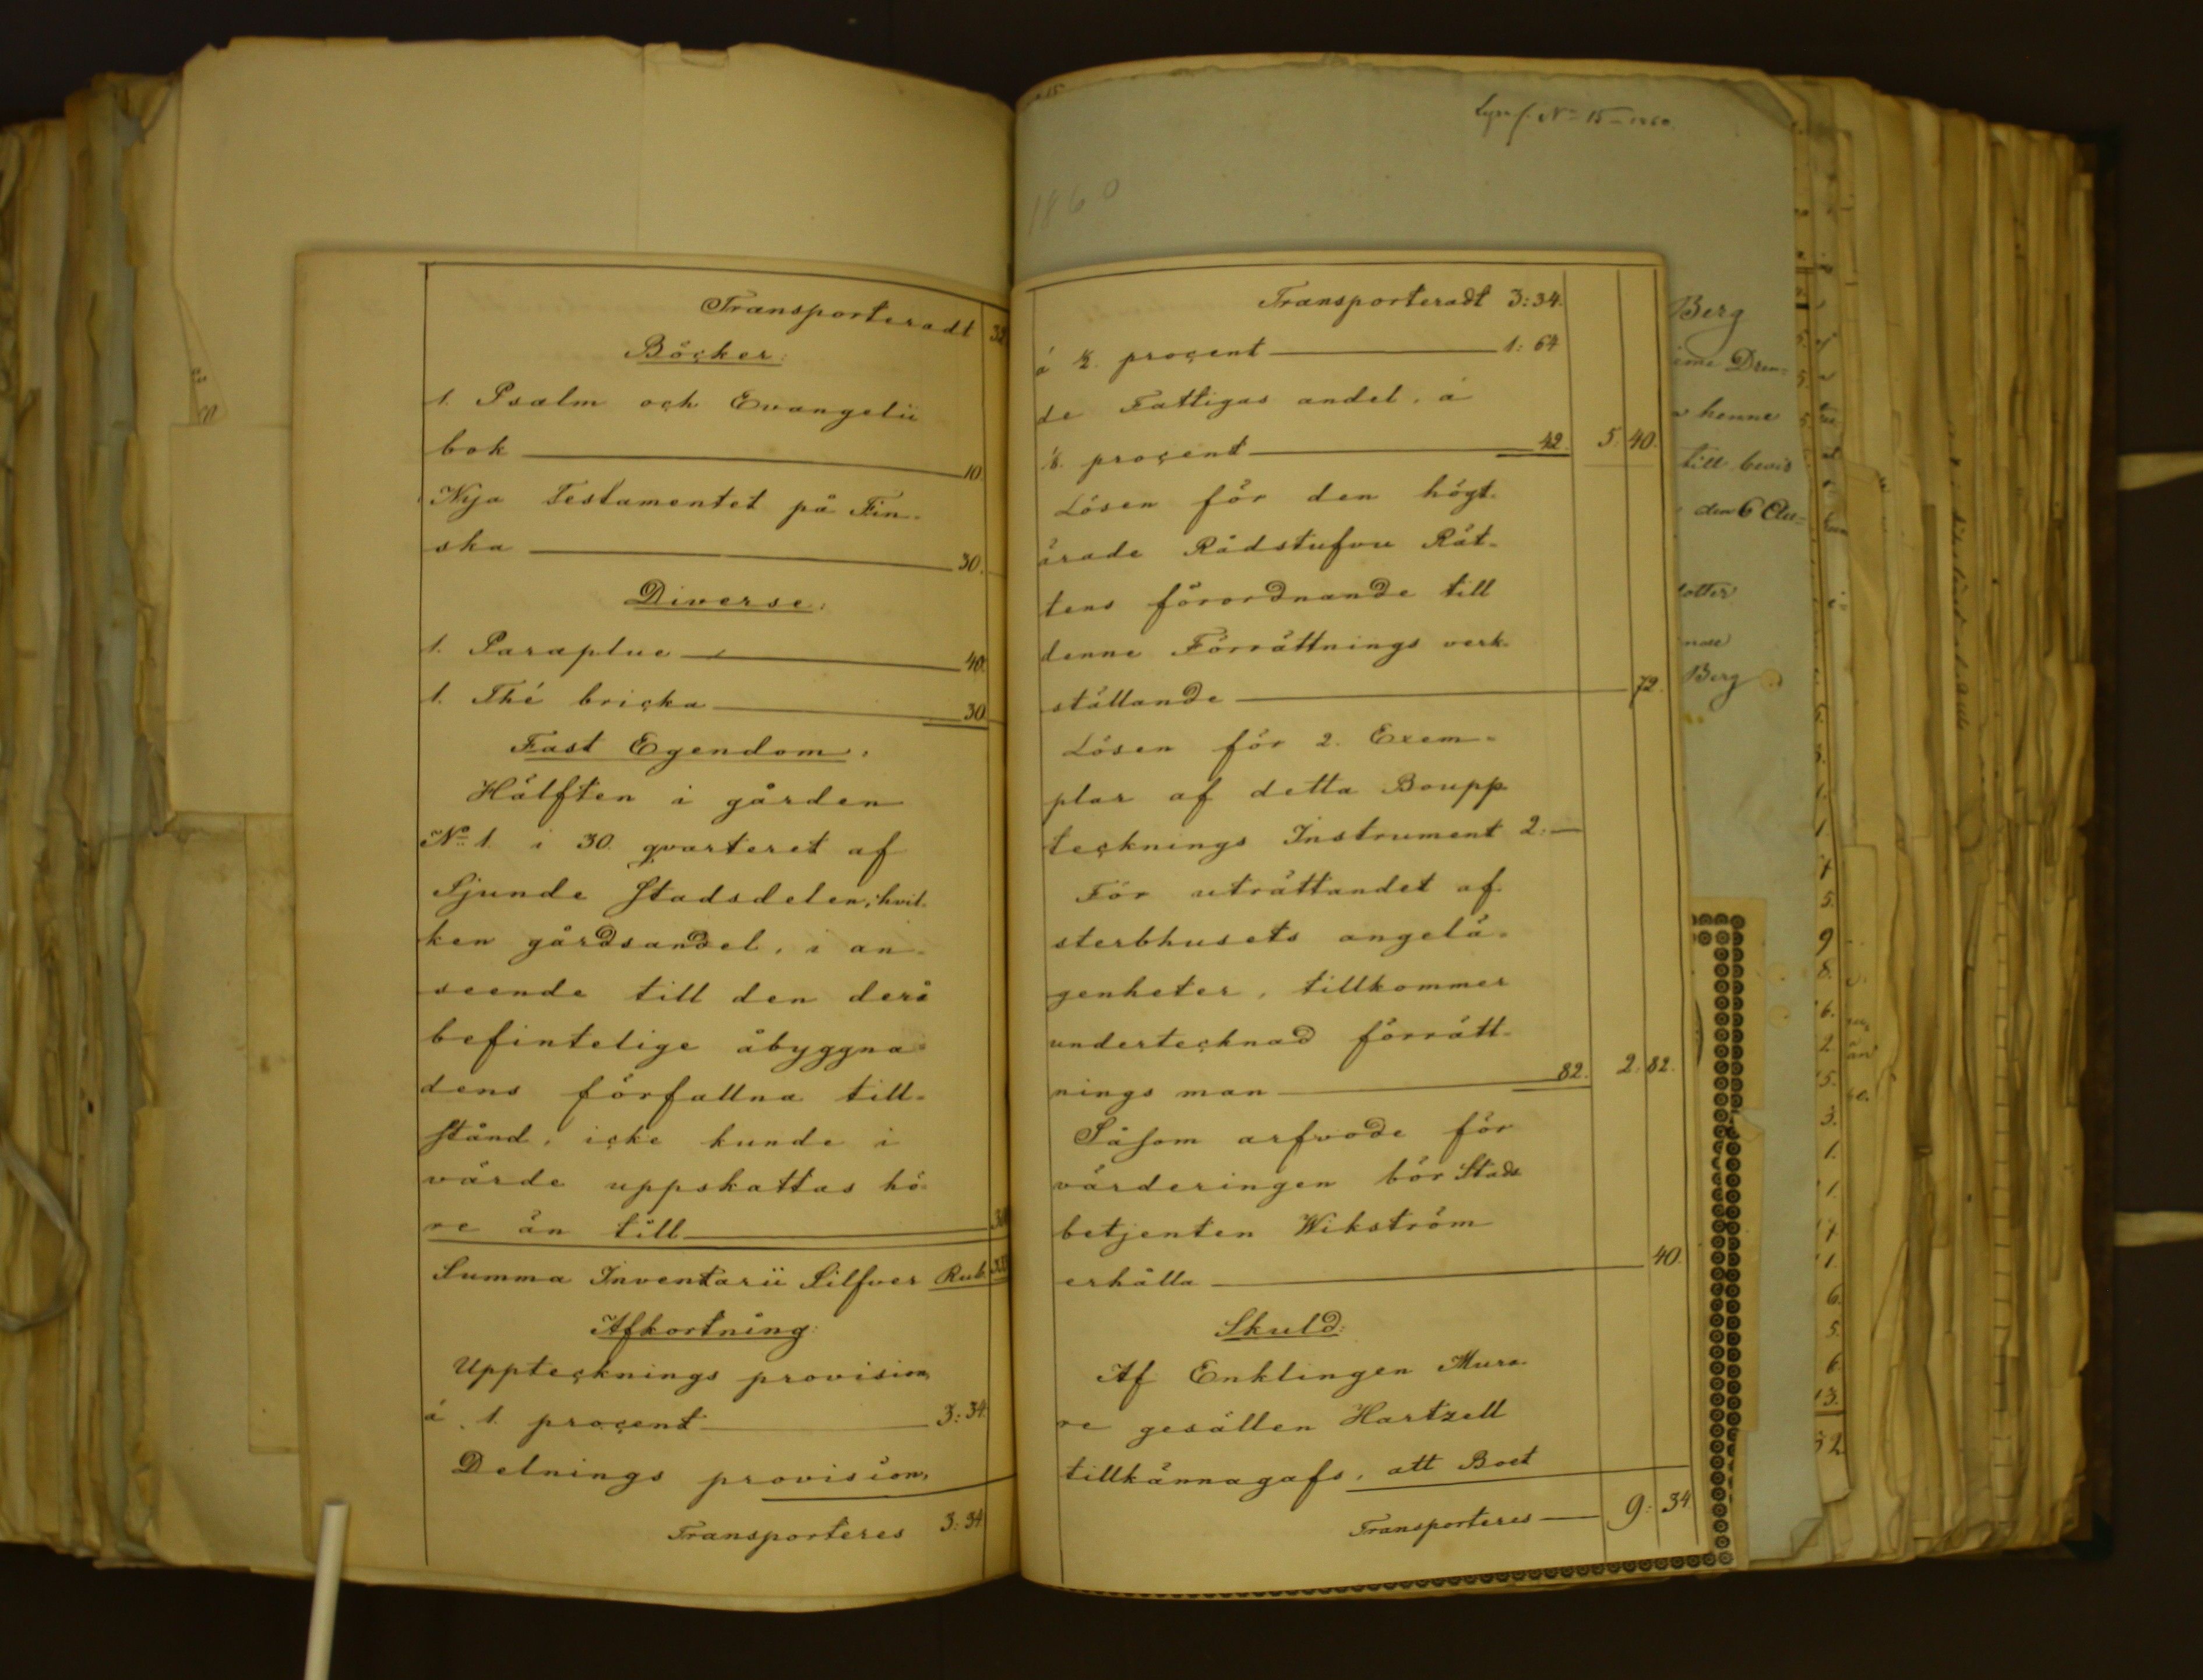 Transporteradt
Böcker:
1. Psalm och Evangelii
bok 10.
Nya Testamentet på Fin-
ska 30.
Diverse:
1. Paraplue 40.
1. Thé bricka 30
Fast Egendom.
Hälften i gården
No 1. i 30. qvarteret af
Sjunde Stadsdelen, hvil-
ken gårdsandel, i an-
seende till den derå
befintelige åbyggna-
dens förfallna till-
stånd, icke kunde i
värde uppskattas hö-
re än till
Summa Inventarii Silfver Rub.
Afkortning:
Upptecknings provision,
á 1. procent 3:34.
Delnings provision,
Transporteres 3:34
Lyss f. No 15 - 1860.
1860
Transporteradt 3:34.
á 1/2. procent 1:64
de Fattigas andel, á
1/8. procent 42. 5. 40.
Lösen för den högt-
ärade Rådstufvu Rät-
tens förordnande till
denne Förrättnings verk-
ställande 72.
Lösen för 2. Exem-
plar af detta Boupp-
tecknings Instrument 2:—
För uträttandet af
sterbhusets angelä-
genheter, tillkommer
undertecknad förrätt-
nings man 82. 2. 82.
Såsom arfvode för
värderingen bör Stads
betjenten Wikström
erhålla 40.
Skuld:
Af Enklingen Mura-
re gesällen Hartzell
tillkännagafs, att Boet
Transporteres 9: 34
Berg
henne
till bevis
den 6
Berg